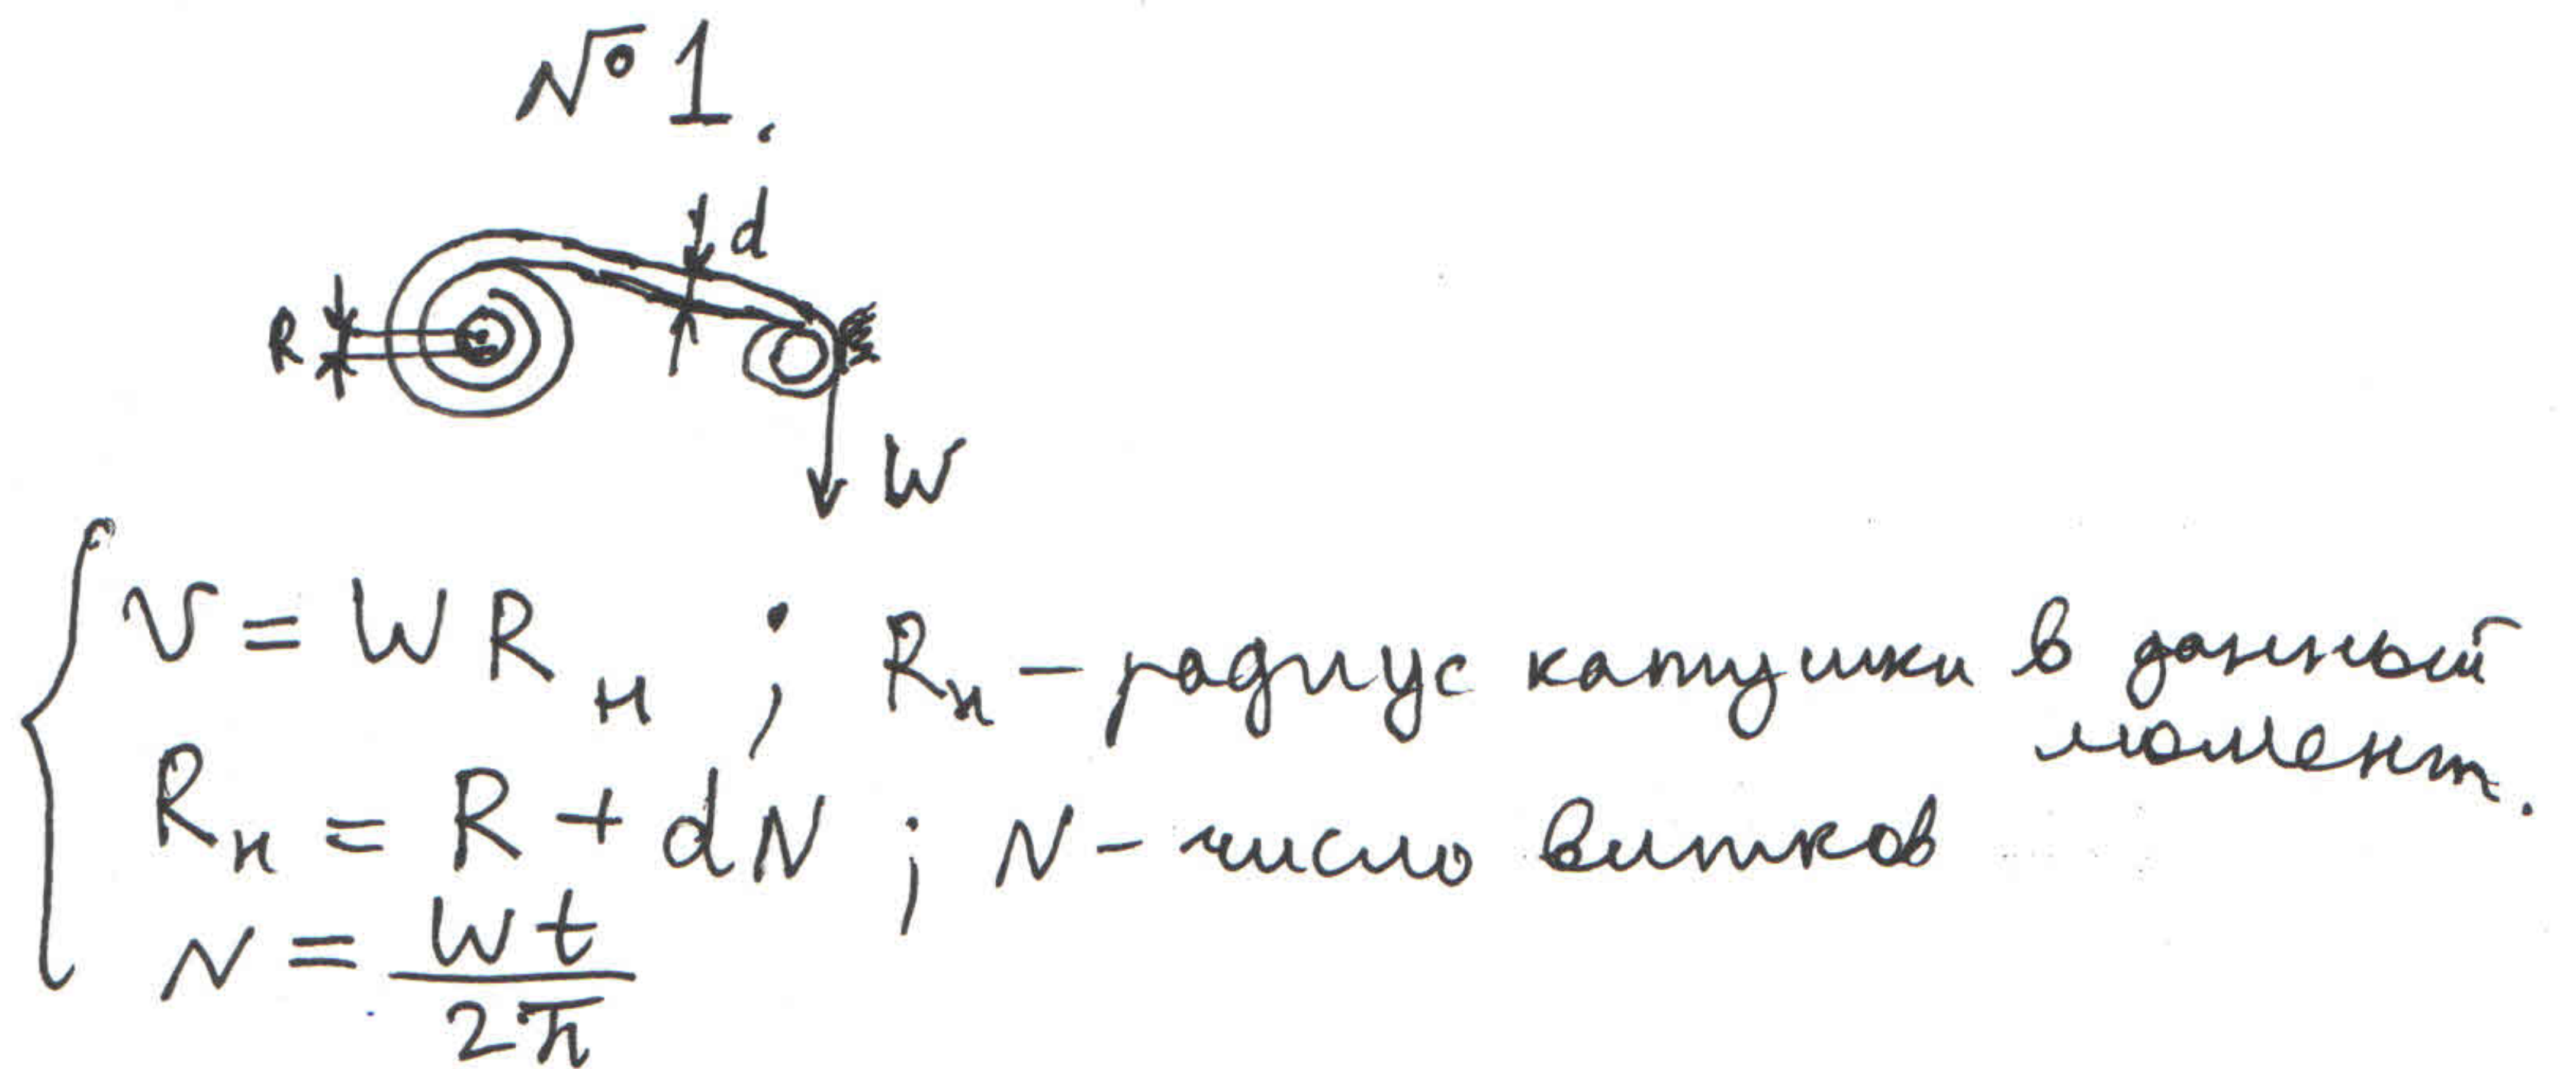 № 1.
d
R
W
v = W R н ; Rн – радиус катушки в данный
момент.
Rн = R + dN ; N – число витков
N = Wt / 2π